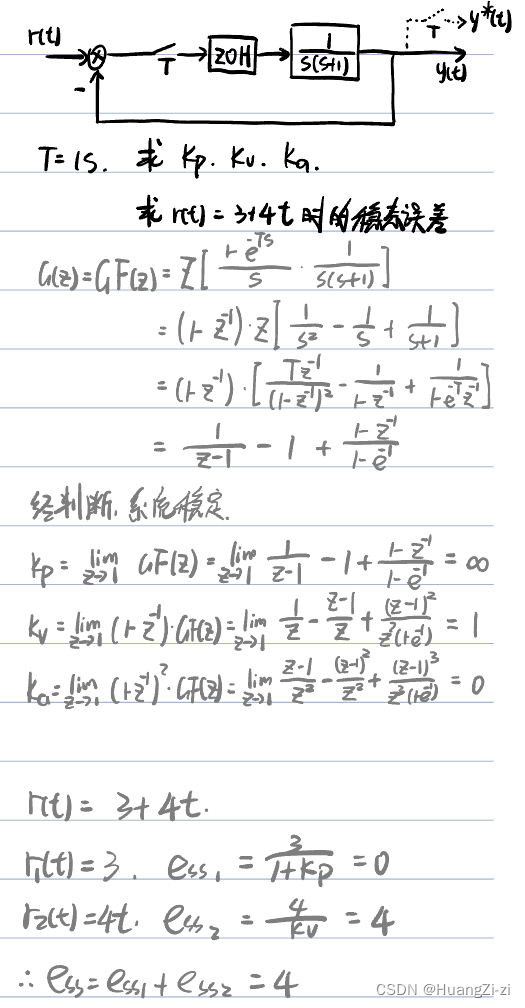 r(t) T ZOH 1/(s(s+1)) T y*(t)
- y(t)
T=1s. 求 Kp. Kv. Ka.
求 r(t)=3+4t 时的稳态误差
G(z)=GF(z)=Z[(1-e^(-Ts))/s · 1/(s(s+1))]
=(1-z^(-1))·Z[1/s^2 - 1/s + 1/(s+1)]
=(1-z^(-1))·[Tz^(-1)/(1-z^(-1))^2 - 1/(1-z^(-1)) + 1/(1-e^(-T)z^(-1))]
= 1/(z-1) - 1 + (1-z^(-1))/(1-e^(-1))
经判断,系统稳定.
Kp = lim z→1 GF(z) = lim z→1 1/(z-1) - 1 + (1-z^(-1))/(1-e^(-1)) = ∞
Kv = lim z→1 (1-z^(-1))·GF(z) = lim z→1 1/z - (z-1)/z + (z-1)^2/(z^2(1-e^(-1))) = 1
Ka = lim z→1 (1-z^(-1))^2·GF(z) = lim z→1 (z-1)/z^2 - (z-1)^2/z^2 + (z-1)^3/(z^3(1-e^(-1))) = 0
r(t) = 3+4t.
r₁(t)=3. ess₁ = 3/(1+Kp) = 0
r₂(t)=4t. ess₂ = 4/Kv = 4
∴ ess=ess₁+ess₂ = 4
CSDN @HuangZi-zi